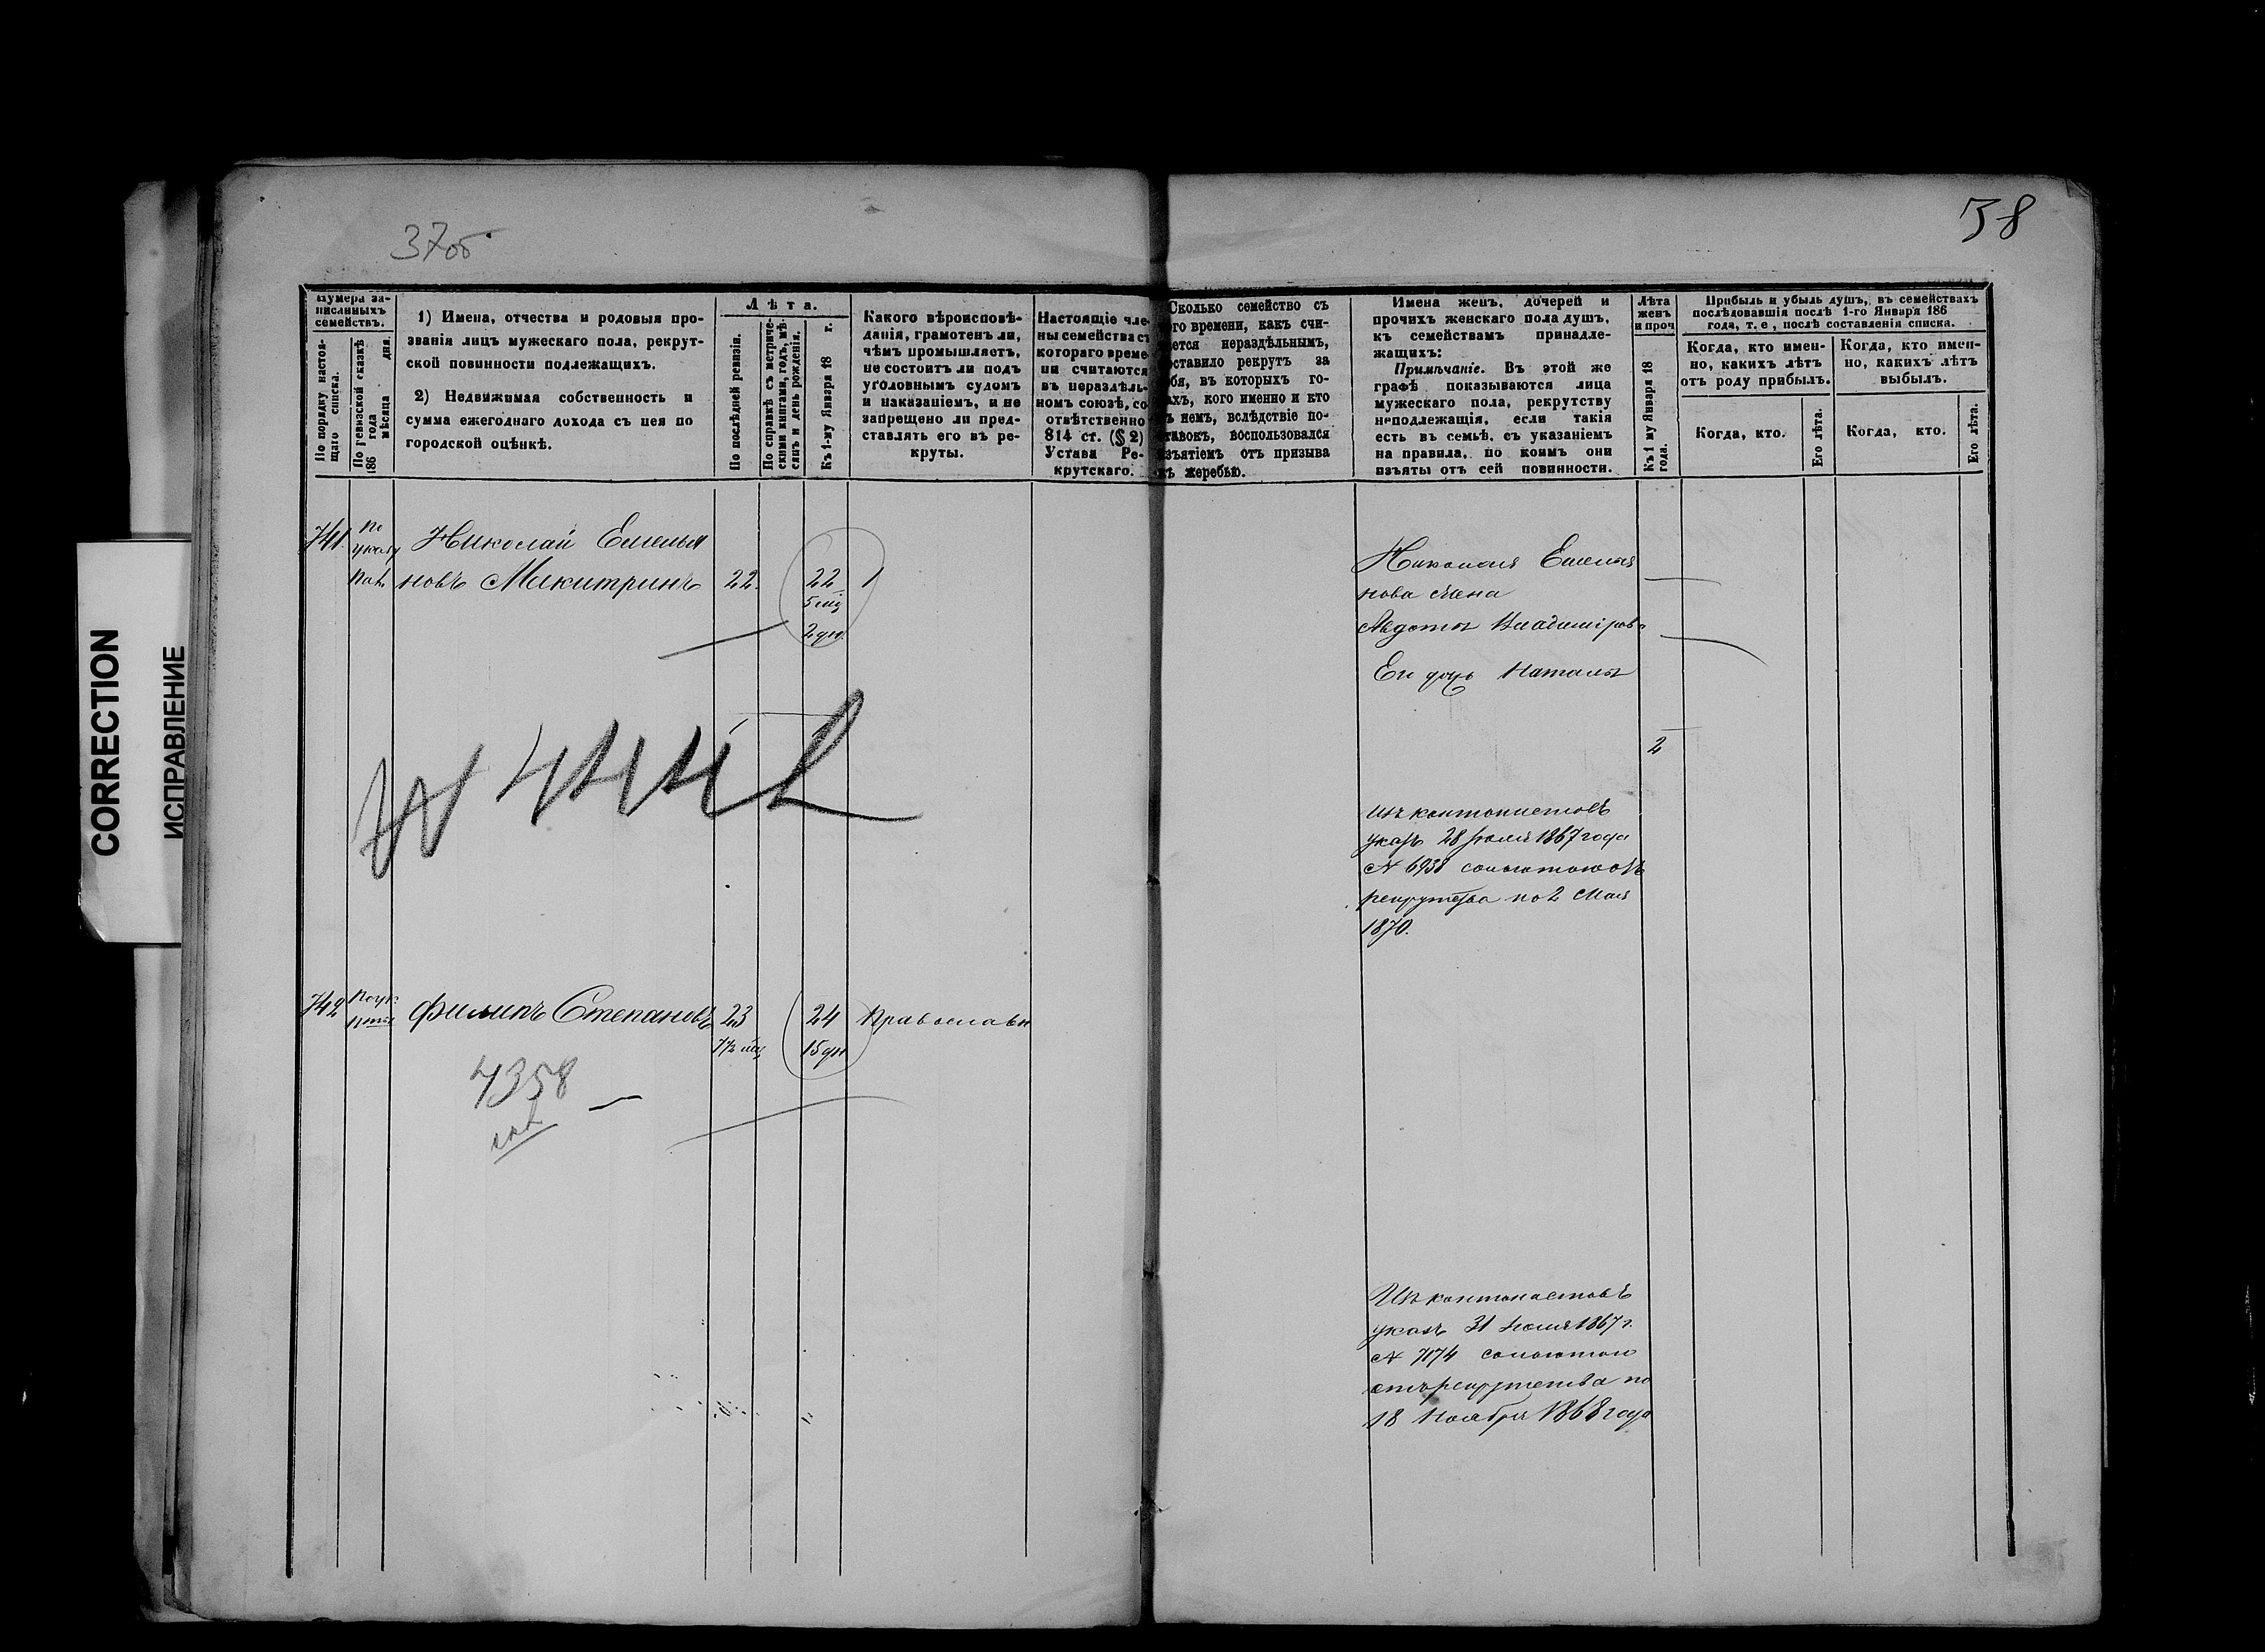 37об
38
CORRECTION
ИСПРАВЛЕНИЕ
Нумера за-
писанныхъ
семействъ.
По порядку настоя-
щаго списка.
По ревизской сказкѣ
186 года
мѣсяца дня.
1) Имена, отчества и родовыя про-
званія лицъ мужескаго пола, рекрут-
ской повинности подлежащихъ.
2) Недвижимая собственность и
сумма ежегоднаго дохода съ нея по
городской оцѣнкѣ.
Лѣта.
По послѣдней ревизіи.
По справкѣ съ метриче-
скими книгами, годъ, мѣ-
сяцъ и день рожденія.
Къ 1-му Января 18 г.
Какого вѣроисповѣ-
данія, грамотенъ ли,
чѣмъ промышляетъ,
не состоитъ ли подъ
уголовнымъ судомъ
и наказаніемъ, и не
запрещено ли пред-
ставлять его въ ре-
круты.
Настоящіе чле-
ны семейства съ
котораго време-
ни считаются
въ нераздѣль-
номъ союзѣ, со-
отвѣтственно
814 ст. (§ 2)
Устава Ре-
крутскаго.
Сколько семейство съ
его времени, какъ счи-
ается нераздѣльнымъ,
оставило рекрутъ за
бя, въ которыхъ го-
ахъ, кого именно и кто
ъ немъ, вслѣдствіе по-
тавокъ, воспользовался
зъятіемъ отъ призыва
къ жеребью.
Имена женъ, дочерей и
прочихъ женскаго пола душъ,
къ семействамъ принадле-
жащихъ:
Примѣчаніе. Въ этой же
графѣ показываются лица
мужескаго пола, рекрутству
неподлежащія, если такія
есть въ семьѣ, съ указаніемъ
на правила, по коимъ они
изъяты отъ сей повинности.
Лѣта
женъ
и проч
Къ 1 му Января 18
года.
Прибыль и убыль душъ, въ семействахъ
послѣдовавшія послѣ 1-го Января 186
года, т. е, послѣ составленія списка.
Когда, кто имен-
но, какихъ лѣтъ
отъ роду прибылъ.
Когда, кто.
Его лѣта.
Когда, кто имен-
но, какихъ лѣтъ
выбылъ.
Когда, кто.
Его лѣта.
741 По
указу
Пал. Николай Емелья
новъ Микитринъ 22. 22
5 мц
2 дн.
Николая Емелья
нова жена
Авдотья Владимірова
Его дочь Наталья
2
изъ кантонистовъ
указъ 28 Іюля 1867 года
№ 6938 сольготою отъ
рекрутства по 2 Мая
1870.
742 По ук.
Филипъ Степановъ 23
7½ мц
24
15 дн
Православн
4358
Изъ кантонистовъ
указъ 31 Іюля 1867 г.
№ 7174 сольготою
отъ рекрутства по
18 Ноября 1868 года